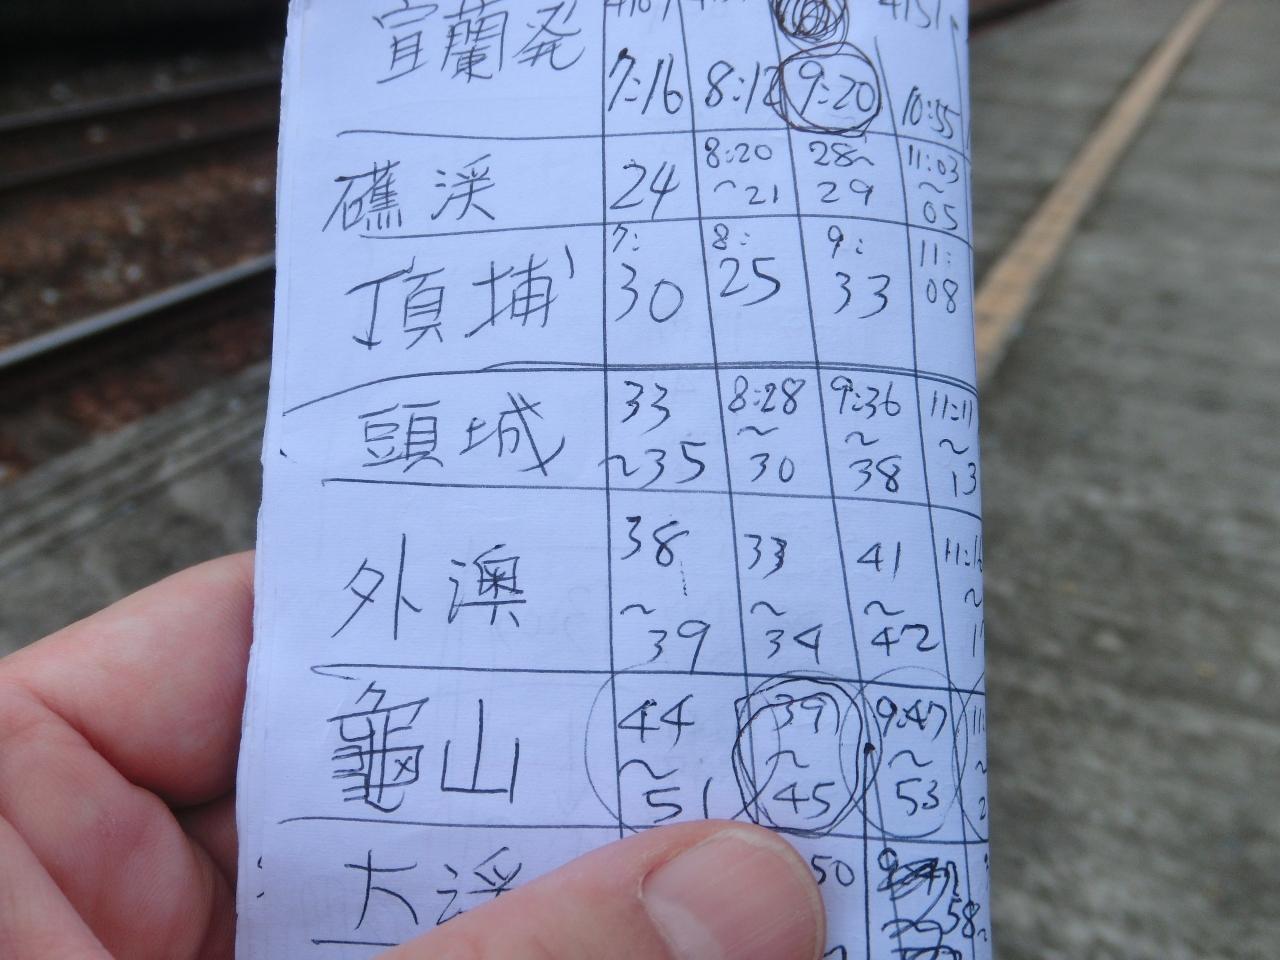 宜蘭発 7:16 8:12 9:20 10:55
礁渓 24 8:20~21 28~29 11:03~05
頂埔 7:30 8:25 9:33 11:08
頭城 33~35 8:28~30 9:36~38 11:11~13
外澳 38~39 33~34 41~42
龜山 44~51 39~45 9:47~53
大渓 50 58~